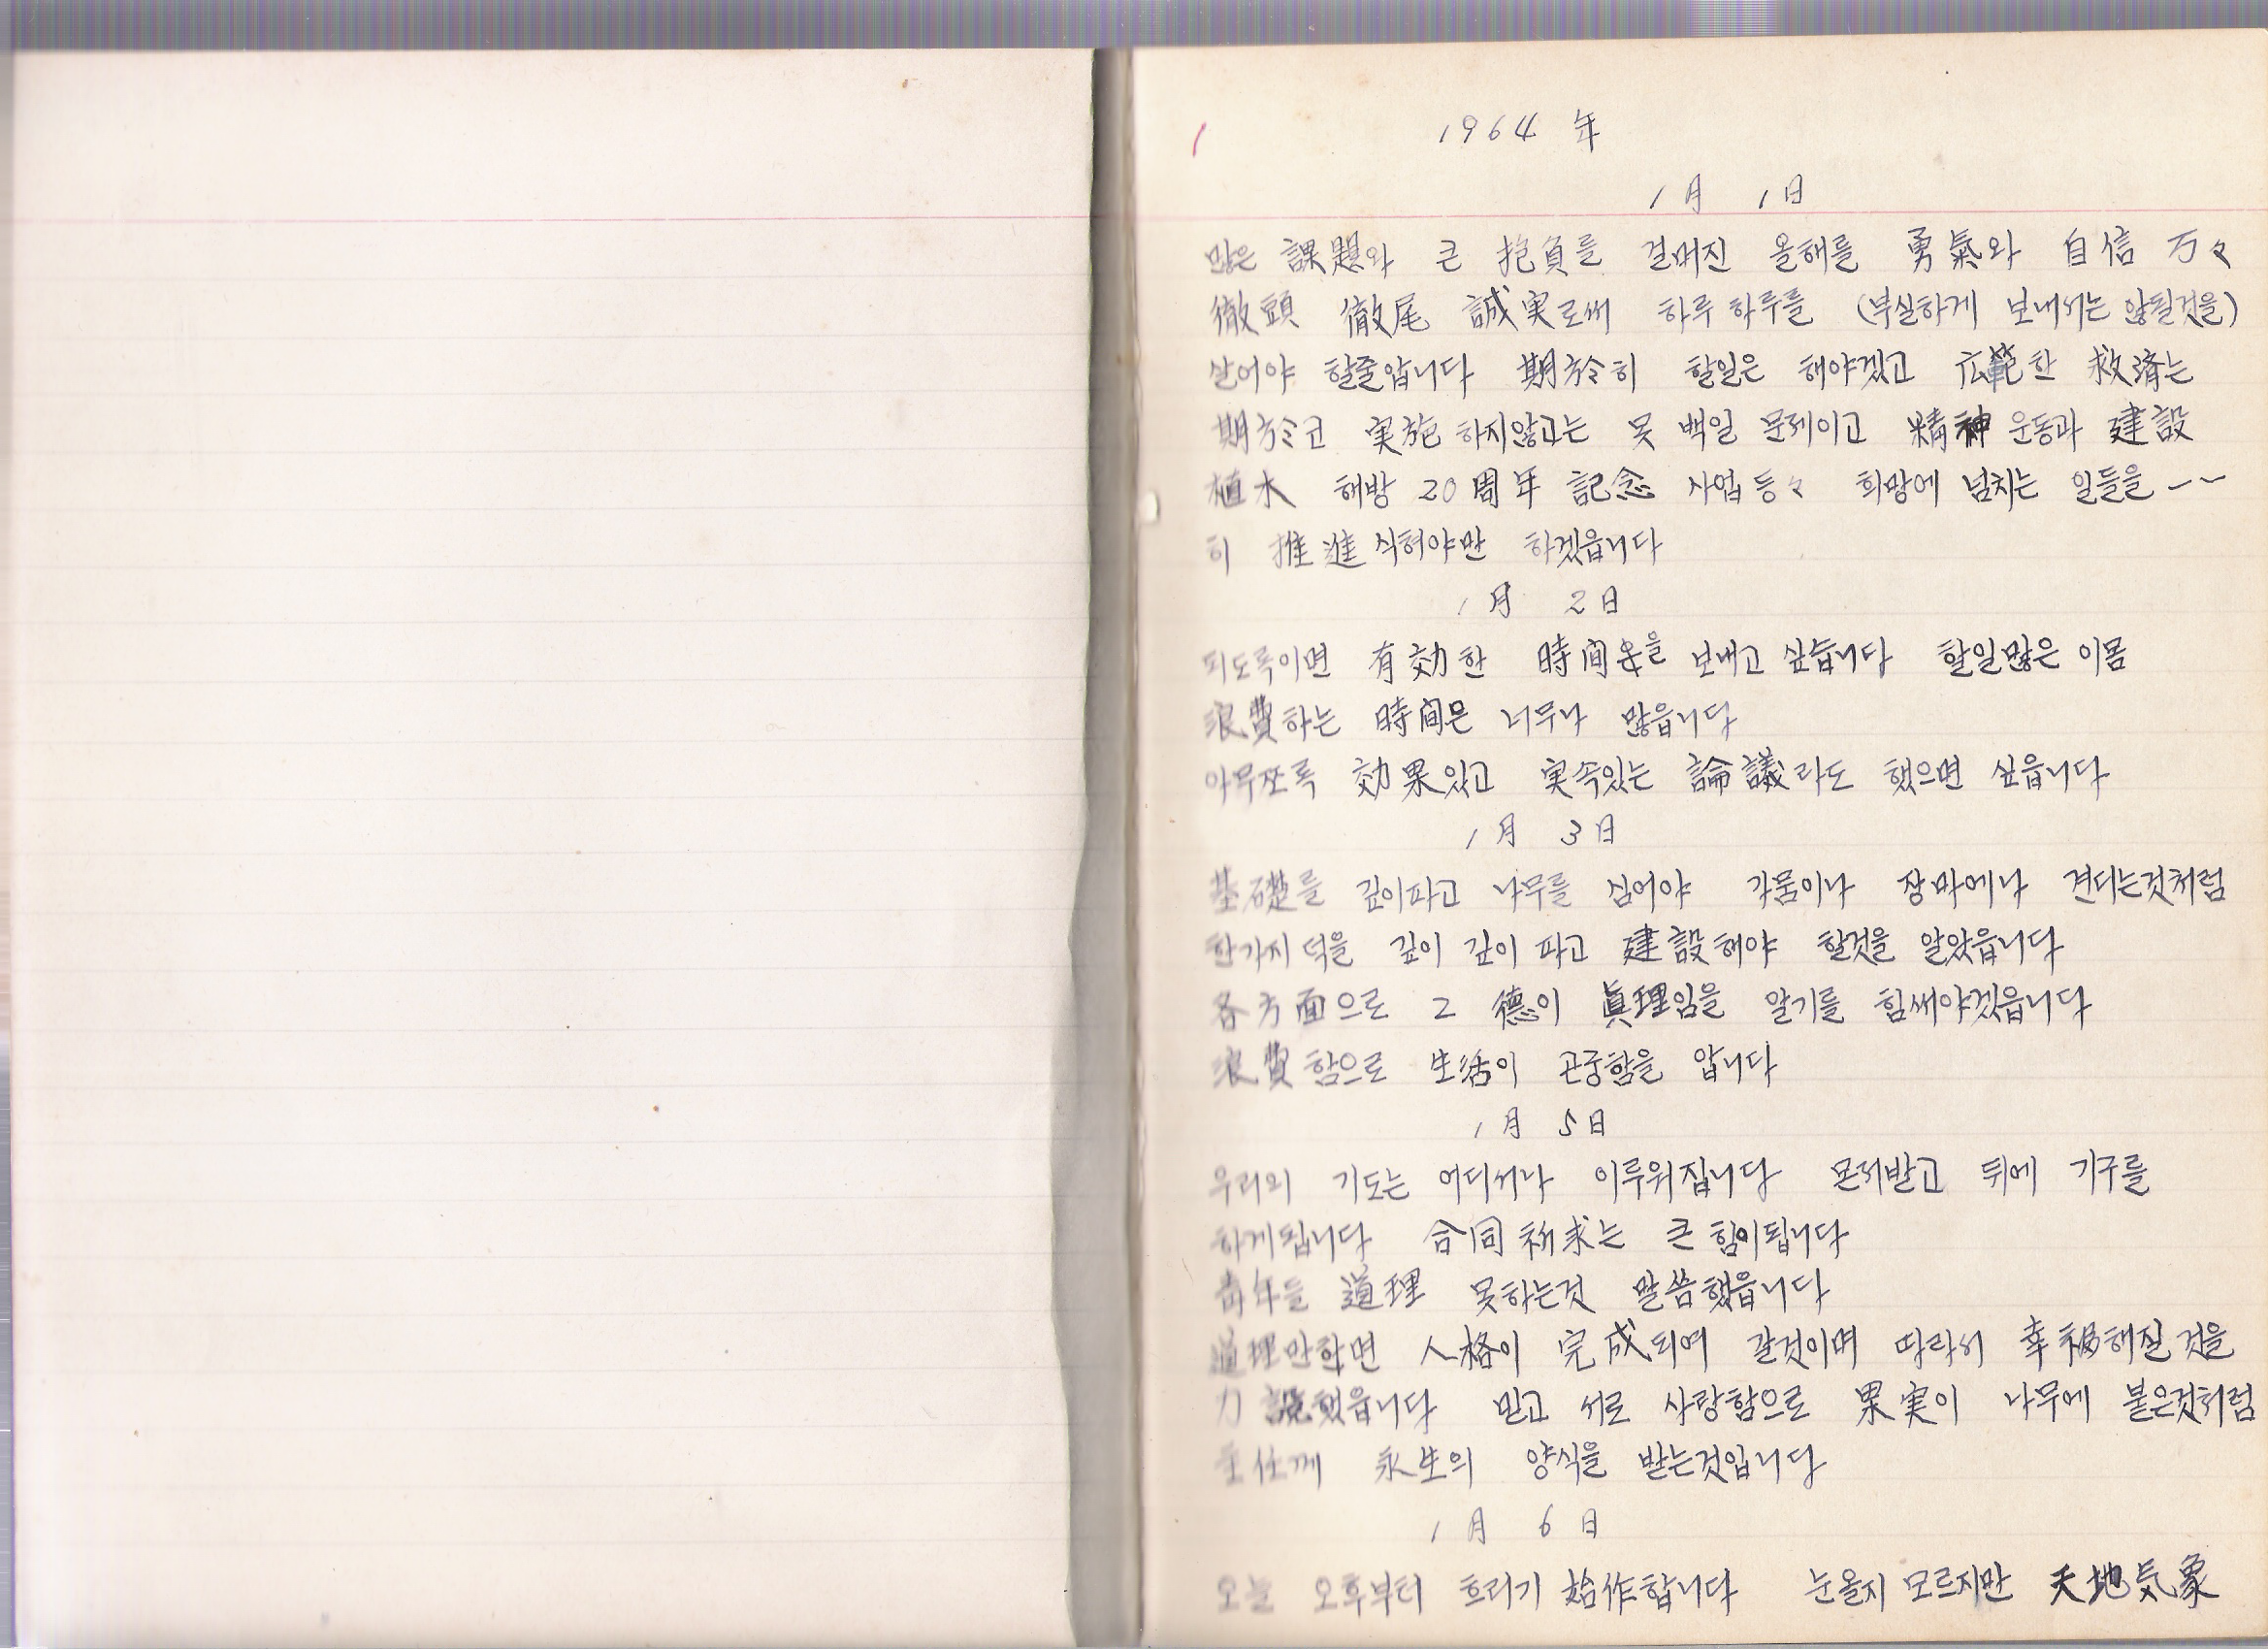 1964 年
1月 1日
많은 課題와 큰 抱負를 걸머진 올해를 勇氣와 自信 万々
徹頭 徹尾 誠実로써 하루 하루를 (부실하게 보내서는 않될것을)
살어야 할줄압니다 期於히 할일은 해야겠고 広範한 救済는
期於코 実施 하지않고는 못 백일 문제이고 精神 운동과 建設
植木 해방 20周年 記念 사업 등々 희망에 넘치는 일들을 一一
히 推進 식혀야만 하겠읍니다
1月 2日
되도록이면 有効한 時間을 보내고 싶습니다 할일많은 이몸
浪費하는 時間은 너무나 많읍니다
아무쪼록 効果있고 実속있는 論議라도 했으면 싶읍니다
1月 3日
基礎를 깊이파고 나무를 심어야 가뭄이나 장마에나 견디는것처럼
한가지 덕을 깊이 깊이 파고 建設해야 할것을 알았읍니다
各方面으로 그 德이 眞理임을 알기를 힘써야겠읍니다
浪費함으로 生活이 곤궁함을 압니다
1月 5日
우리의 기도는 어디서나 이루워집니다 몬저받고 뒤에 기구를
하게됩니다 合同 祈求는 큰 힘이됩니다
青年들 道理 못하는것 말씀했읍니다
道理만하면 人格이 完成되여 갈것이며 따라서 幸福해질것을
力說했읍니다 믿고 서로 사랑함으로 果実이 나무에 붙은것처럼
主任께 永生의 양식을 받는것입니다
1月 6日
오늘 오후부터 흐리기 始作합니다 눈올지 모르지만 天地気象